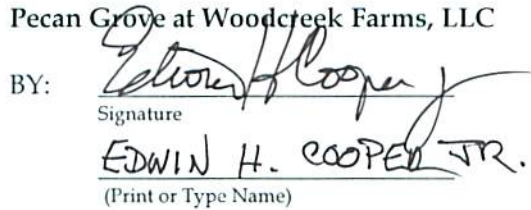 Pecan Grove at Woodcreek Farms, LLC
BY: Edwin H Cooper Jr
Signature
EDWIN H. COOPER JR.
(Print or Type Name)